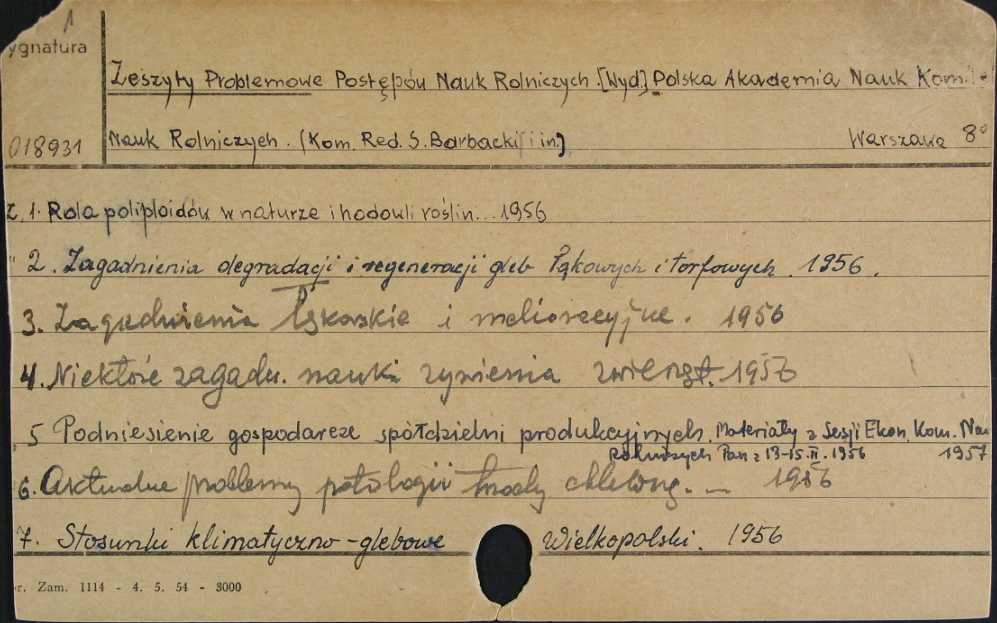 1
ygnatura
Zeszyty Problemowe Postępów Nauk Rolniczych. [Wyd.] Polska Akademia Nauk Komitet
018931
Nauk Rolniczych. (Kom. Red. S. Barbacki i in.) Warszawa 8°
z. 1. Rola poliploidów w naturze i hodowli roślin... 1956
" 2. Zagadnienia degradacji i regeneracji gleb łąkowych i torfowych. 1956.
3. Zagadnienia łąkarskie i melioracyjne. 1956
4. Niektóre zagadn. nauki żywienia zwierząt. 1957
5 Podniesienie gospodarcze spółdzielni produkcyjnych. Materiały z Sesji Ekon. Kom. Nau
Rolniczych Pan z 13-15.II. 1956 1957
6. Aktualne problemy patologii trzody chlewnej. — 1956
7. Stosunki klimatyczno-glebowe Wielkopolski. 1956
r. Zam. 1114 - 4. 5. 54 - 3000